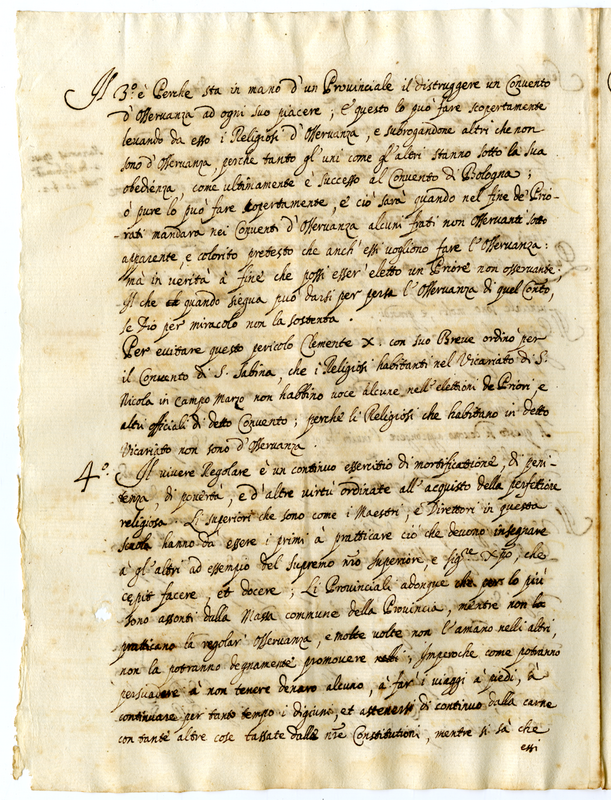 Il 3.º è Perche sta in mano d'un Provinciale il distruggere un Convento
d'Osservanza ad ogni suo piacere; e questo lo può fare scopertamente
levando da esso i Religiosi d'Osservanza, e subrogandone altri che non
sono d'Osservanza, perche tanto gl'uni come gl'altri stanno sotto la sua
obedienza, come ultimamente è successo al Convento di Bologna;
ò pure lo può fare copertamente, e ciò sarà quando nel fine de Prio-
-rati mandarà nei Conventi d'Osservanza alcuni frati non Osservanti sotto
apparente, e colorito pretesto che anch'essi vogliono fare l'Osservanza:
mà in verità à fine che possi esser'eletto un Priore non osservante;
Il che quando siegua può darsi per persa l'Osservanza di quel Conto,
se Dio per miracolo non la sostenta.
Per evitare questo pericolo Clemente X. con suo Breve ordinò per
il Convento di S. Sabina, che i Religiosi habitanti nel Vicariato di S.
Nicola in campo Marzo non habbino voce alcune nell'elettioni de Priori, e
altri officiali di detto Convento; perche li Religiosi che habitano in detto
Vicariato non sono d'Osservanza.
4.º Il vivere Regolare è un continuo essercitio di mortificatione, di peni-
tenza, di povertà, e d'altre virtù ordinate all'acquisto della perfettione
religiosa. Li superiori che sono come i Maestri, e Direttori in questa
scuola hanno da essere i primi à pratticare ciò che devono insegnare
à gl'altri ad essempio del supremo nr̃o superiore, e sig.re Xp̃o, che
cepit facere, et docere; Li Provinciali adonque che per lo più
sono assonti dalla Massa commune della Provincia, mentre non la
praticano la regolar'Osservanza, e molte volte non l'amano nelli altri,
non la potranno degnamente promovere; Imperoche come potranno
persuadere à non tenere denaro alcuno, à far'i viaggi à piedi, à
continuare per tanto tempo i digiuni, et astenersi di continuo dalla carne
con tante altre cose tassate dalle nr̃e Constitutioni, mentre si sà che
essi